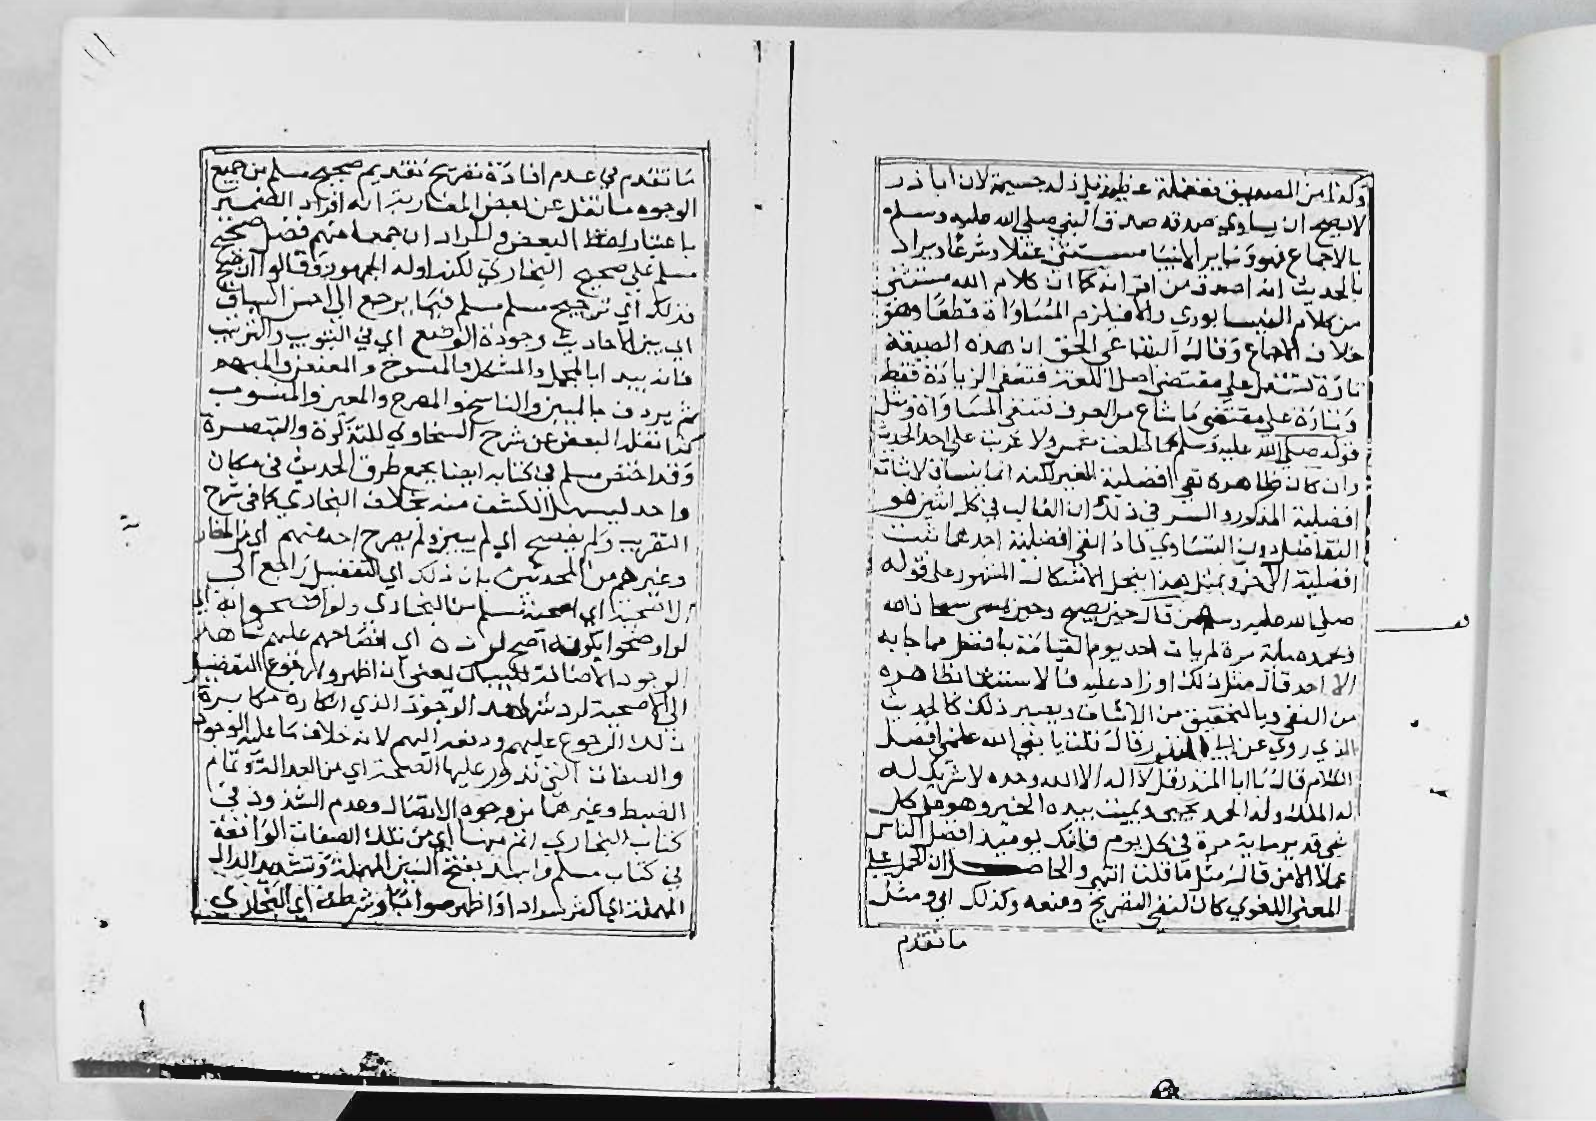 وكذا من الصديق فضلة عظيمة جسيمة لان ابا ذر
لا يصح ان يساوي صدقه صدق النبي صلي الله عليه وسلم
بالاجماع فهو وساير الانبيا مستثنى عقلا وشرعا ويراد
بالحديث انه اصدق من اقرانه كما ان كلام الله مستثنى
من كلام النيسابوري والا فيلزم المساواة قطعا وهو
خلاف الاجماع وقال البقاعي الحق ان هذه الصيغة
تارة تستعمل على مقتضى اصل اللغة فتنفى الزيادة فقط
وتارة على مقتضى ما شاع من العرف فتنفى المساواة ومثل
قوله صلى الله عليه وسلم ما طلعت شمس ولا غربت على احد الحديث
وان كان ظاهره نفي افضلية الغير لكنه انما ينساق لاثبات
افضلية المذكور والسر في ذلك ان الغالب في كل اثنين هو
التفاضل دون التساوي فاذا نفى افضلية احدهما ثبت
افضلية الاخر وبمثل هذا ينحل الاشكال المشهور على قوله
صلى الله عليه وسلم من قال حين يصبح وحين يمسى سبحان الله
وبحمده مائة مرة لم يات احد يوم القيامة بافضل مما جا به
الا احد قال مثل ذلك او زاد عليه فالاستثنا بظاهره
من النفي وبالتحقيق من الاثبات ويعبر ذلك كالحديث
الذي روي عن ابي المنذر قال قلت يا نبي الله علمني افضل
الكلام قال يا ابا المنذر قل لا اله الا الله وحده لا شريك له
له الملك وله الحمد يحيى ويميت بيده الخير وهو على كل
شي قدير ماية مرة في كل يوم فانك يوميذ افضل الناس
عملا الا من قال مثل ما قلت انتهى والحاصل ان الحمل على
المعنى اللغوي كان لنفي التصريح ومنعه وكذلك اي ومثل
ما تقدم
ما تقدم في عدم افادة تصريح تقديم صحيح مسلم من جميع
الوجوه ما نقل عن بعض المغاربة انه افراد الضمير
باعتبار لفظ البعض والمراد ان جمعا منهم فضل صحيح
مسلم على صحيح البخاري لكن اوله الجمهور وقالوا ان
ذلك اي ترجيح مسلم فيما يرجع الى حسن السياق
اي بين الاحاديث وجودة الوضع اي في التبويب والترتيب
فانه يبدا بالمجمل والمشكل والمنسوخ والمعنعن والمبهم
ثم يردف بالمبين والناسخ والمصرح والمعين والمنسوب
كذا نقله البعض عن شرح السخاوي للتذكرة والتبصرة
وقد اختص مسلم في كتابه ايضا بجمع طرق الحديث في مكان
واحد ليسهل الكشف منه بخلاف البخاري كما في شرح
التقريب ولم يفصح اي لم يبين ولم يصرح احد منهم اي من المغاربة
وغيرهم من المحدثين بان ذلك اي التفضيل راجع الى
الاصحية اي اصحية مسلم من البخاري ولو افصحوا به اي
لو اوضحوا بكونه اصح لرده اي افصاحهم عليهم شاهد
الوجود الاضافة للبيان يعني ان اظهروا رجوع التفضيل
الى الاصحية لرد شاهد الوجود الذي انكاره مكابرة
ذلك الرجوع عليهم ودفعه اليهم لانه خلاف ما عليه الوجود
والصفات التي تدور عليها الصحة اي من العدالة وتمام
الضبط وغيرهما من وجوه الاتصال وعدم الشذوذ في
كتاب البخاري اتم منها اي من تلك الصفات الواقعة
في كتاب مسلم واسد بفتح السين المهملة وتشديد الدال
المهملة اي اكثر سدادا واظهر صوابا وشرطه اي البخاري